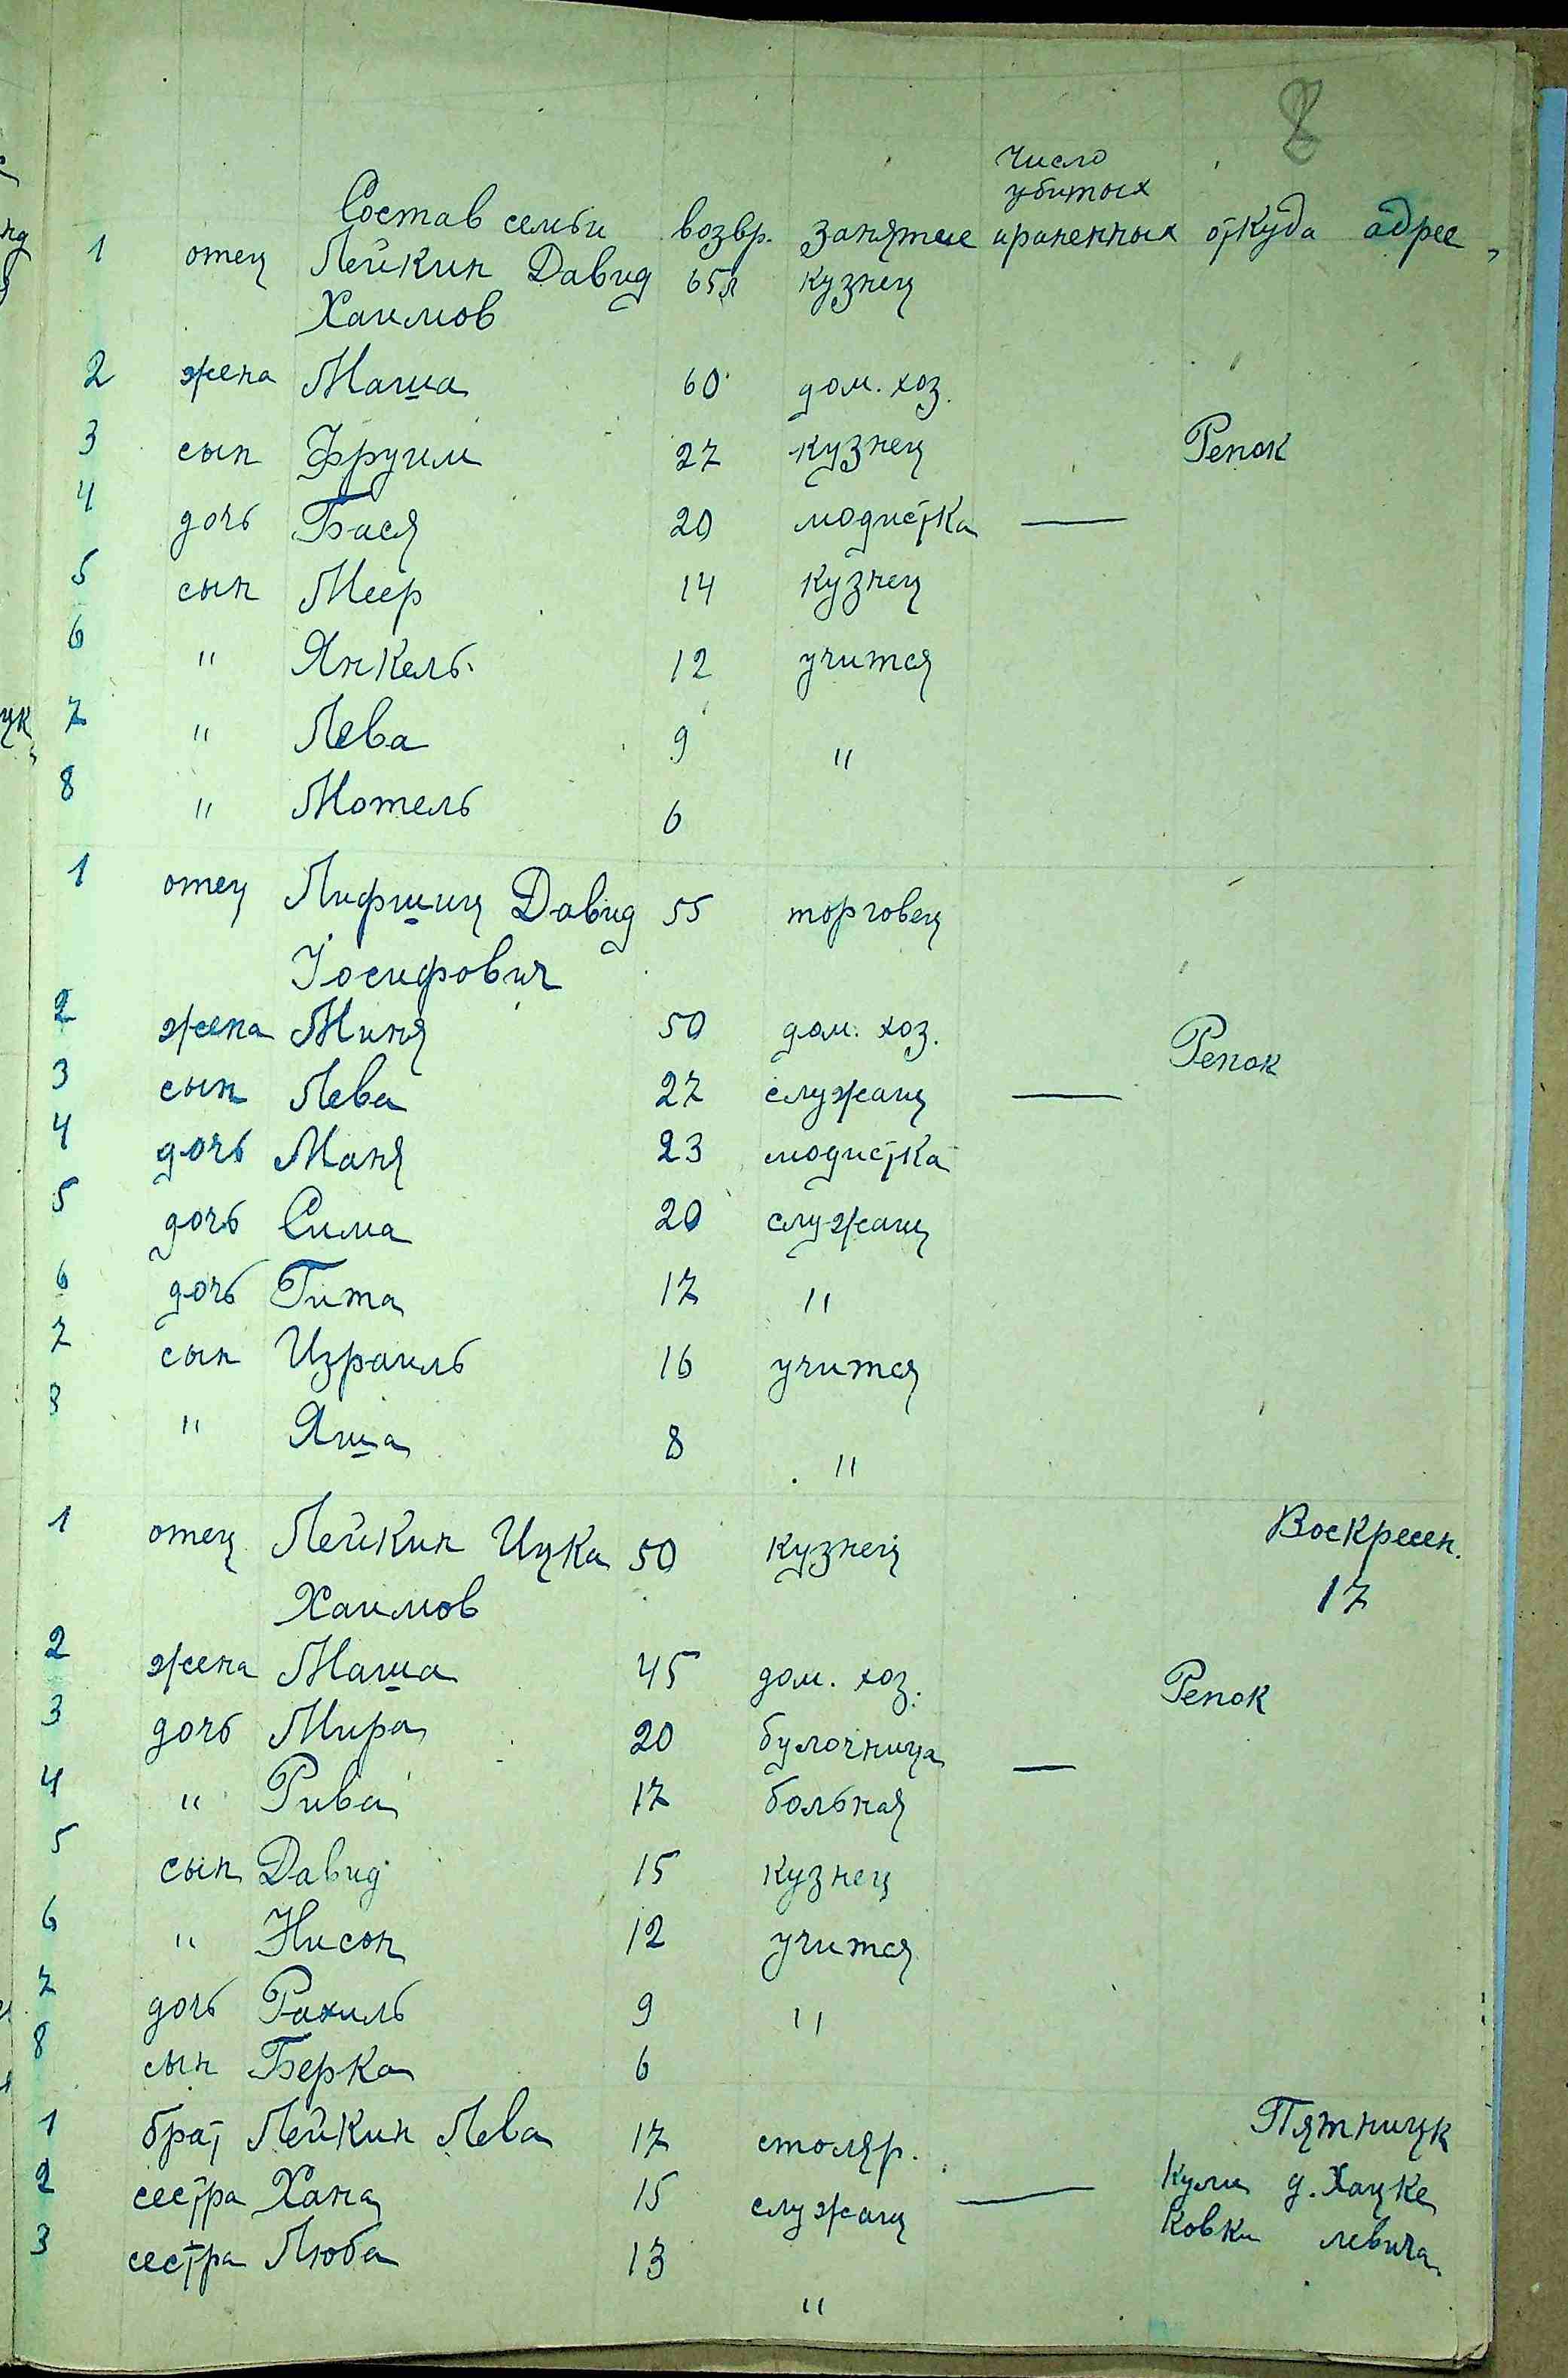 8
Число
убитых
Состав семьи возвр. занятие ираненных откуда адрес
1 отец Лейкин Давид 65л кузнец
Хаимов
2 жена Маша 60 дом. хоз.
3 сын Фруим 27 кузнец Репок
4 дочь Бася 20 модистка —
5 сын Меер 14 кузнец
6 " Янкель 12 учится
7 " Лева 9 "
8 " Мотель 6
1 отец Лифшиц Давид 55 торговец
Іосифович
2 жена Миня 50 дом. хоз. Репок
3 сын Лева 27 служащ —
4 дочь Маня 23 модистка
5 дочь Сима 20 служащ
6 дочь Гита 17 "
7 сын Израиль 16 учится
8 " Яша 8 "
1 отец Лейкин Ицка 50 кузнец Воскресен.
Хаимов 17
2 жена Маша 45 дом. хоз. Репок
3 дочь Мира 20 булочница —
4 " Рива 17 больная
5 сын Давид 15 кузнец
6 " Нисон 12 учится
7 дочь Рахиль 9 "
8 сын Берка 6
1 брат Лейкин Лева 17 столяр. Пятницк
2 сестра Хана 15 служащ — Кули д. Хацке
3 сестра Люба 13 " Ковки левича